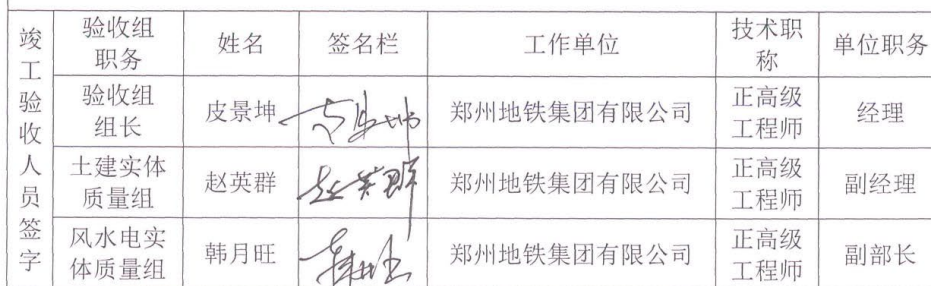 竣工验收人员签字
验收组职务 姓名 签名栏 工作单位 技术职称 单位职务
验收组组长 皮景坤 郑州地铁集团有限公司 正高级工程师 经理
土建实体质量组 赵英群 赵英群 郑州地铁集团有限公司 正高级工程师 副经理
风水电实体质量组 韩月旺 郑州地铁集团有限公司 正高级工程师 副部长